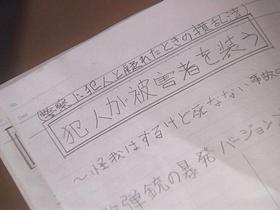 警察に犯人と疑われたときの撹乱法
犯人が被害者を装う
〜怪我はするけど死なない事故の
弾銃の暴発バージョン